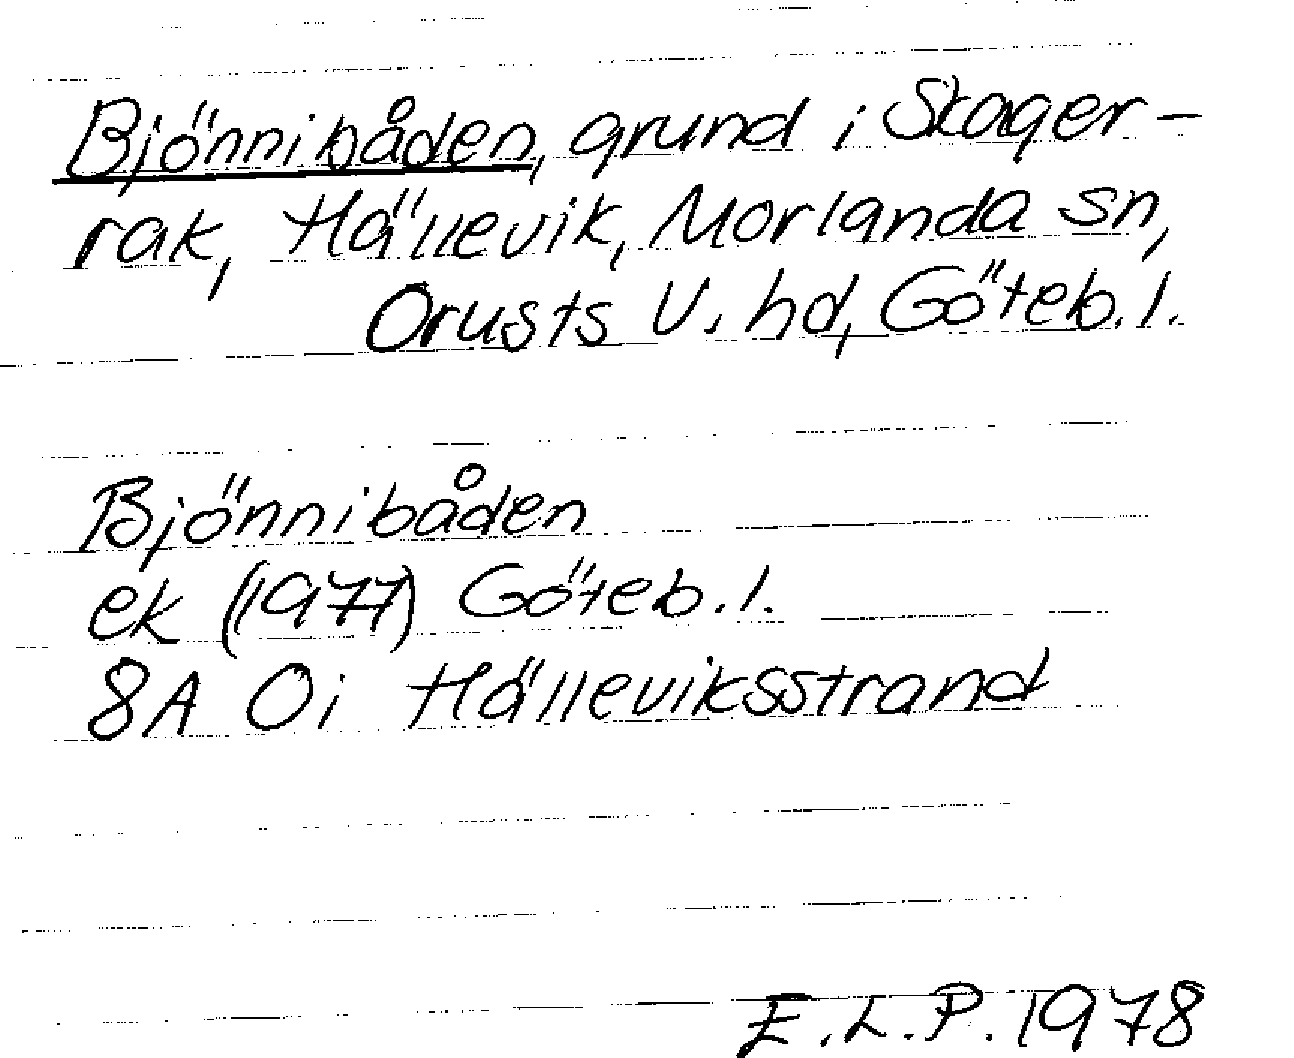 Bjönnibåden, grund i Skager-
rak, Hällevik, Morlanda sn,
Orusts V. hd, Göteb. l.
Bjönnibåden
ek (1977) Göteb. l.
8A Oi Hälleviksstrand
E.L.P. 1978